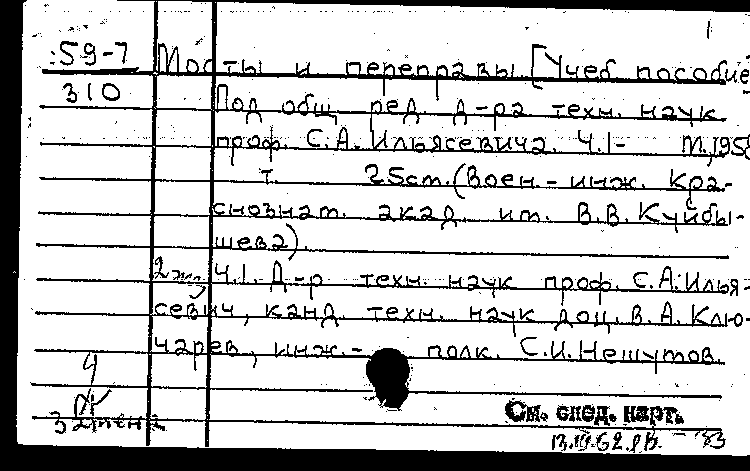 :59-7 Мосты и переправы. [Учеб. пособие
310 Под общ. ред. д-ра техн. наук
проф. С.А. Ильясевича. Ч.1- М., 1958
т. 25см. (Воен.-инж. Кра-
снознам. акад. им. В.В. Куйбы-
шева).
Ч.1. Д-р техн. наук проф. С.А. Илья-
севич, канд. техн. наук доц. В.А. Клю-
чарев, инж.- полк. С.И. Нешумов.
4
См. след. карт.